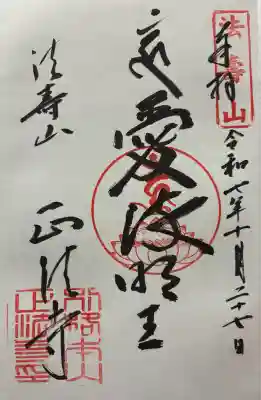 法壽山
奉拝
令和七年十月二十七日
愛染明王
法壽山
正法寺